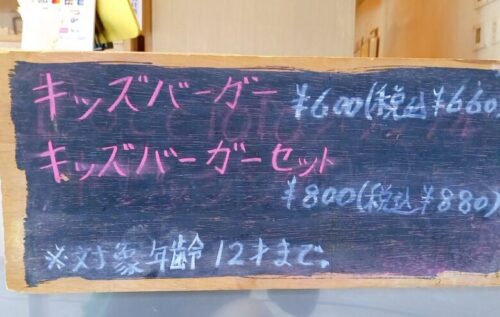 キッズバーガー ¥600(税込¥660)
キッズバーガーセット
¥800(税込¥880)
※対象年齢12才まで。